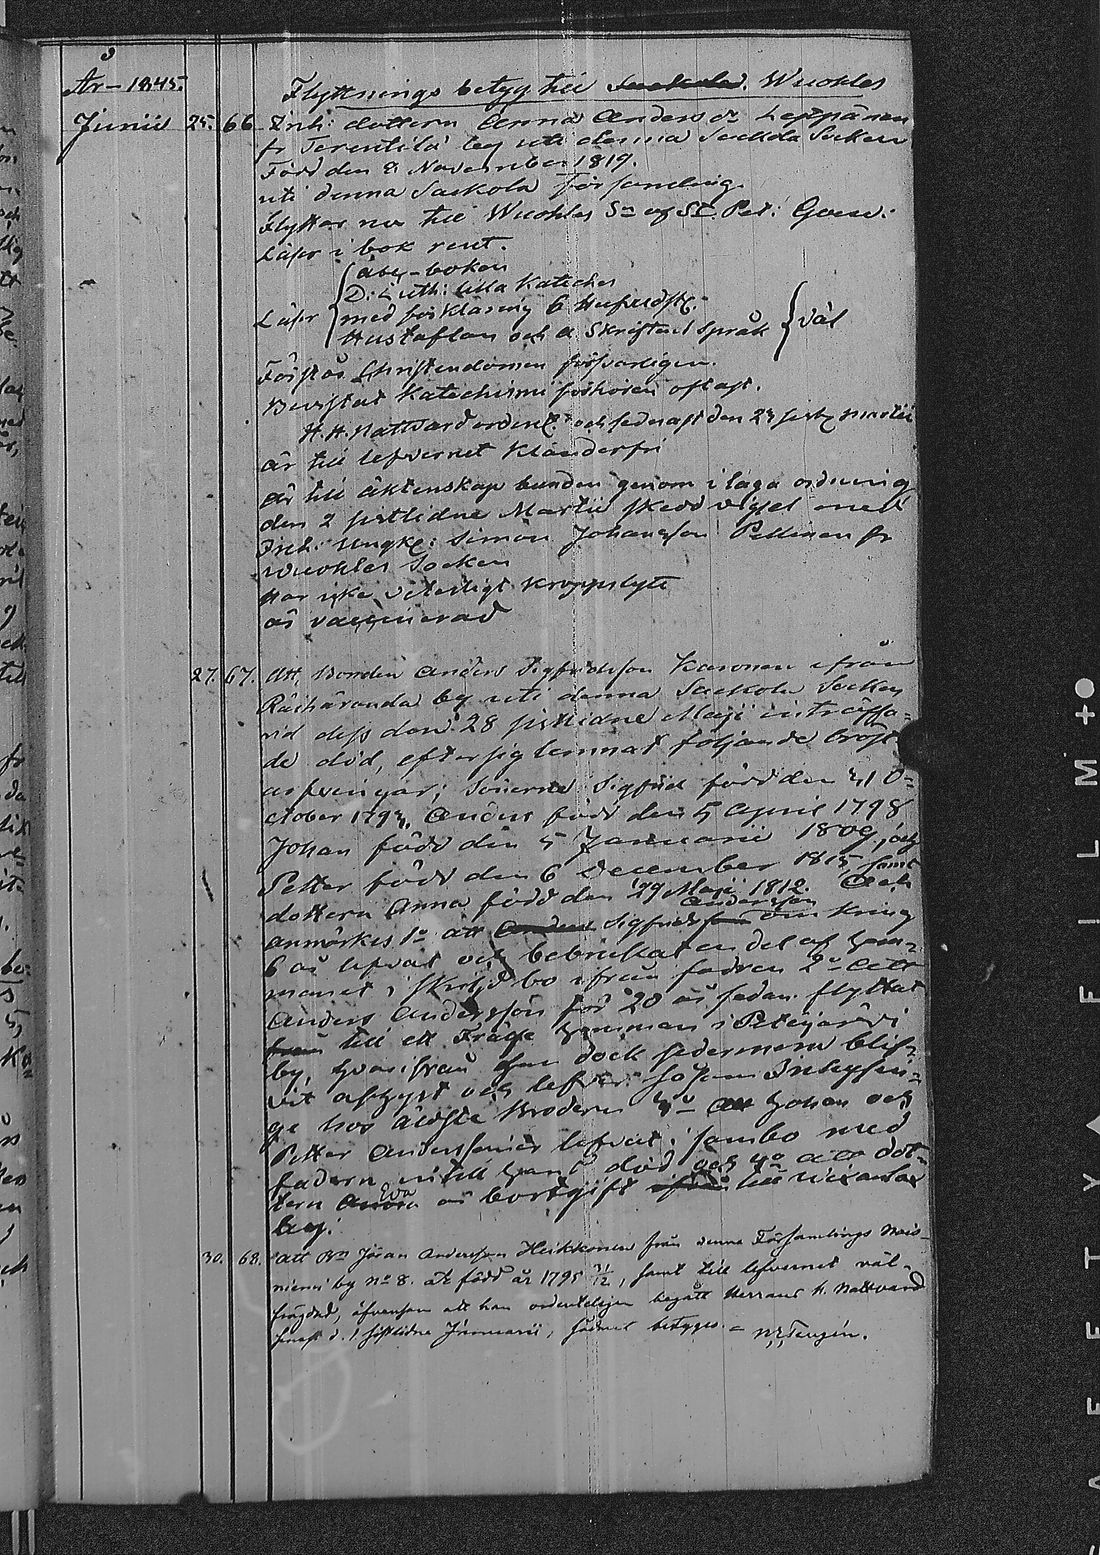 År 1845.
Flyttnings betyg till Sackola. Wuokles
Junii 25. 66. Inh: dottern Anna Andersdr Leppänen
fr Terentilä by uti denna Sackola Socken
Född den 8 November 1819.
uti denna Sackola församling.
Flyttar nu till Wuokles Sn af St. Pet: Gouv:
Läser i bok rent.
abc-boken
D: Luth: lilla Kateches
Läser med förklaring
Hustaflan och a. Skriftens språk väl
Förstår Christendomen försvarligen.
Bevistat Katechismi förhören oftast.
H.H. Nattvard ordentl. och sednast den Martii
är till lefvernet klanderfri
är till äktenskap bunden genom i laga ordning
den 2 sistlidne Martii skedd vigsel med
Inh: Ungk: Simon Johansson Pellinen fr
Wuokles Socken
Har icke veterligt kroppslyte
är vaccinerad
27. 67. Att Bonden Anders Sigfridsson Karonen ifrån
Räihäranda by uti denna Sackola Socken
vid dess den 28 sistlidne Maji inträffa-
de död, efter sig lemnat följande bröst-
arfvingar; Sönerne Sigfrid född den 21 O-
ctober 1793, Anders född den 5 April 1798
Johan född den 5 Januarii 1809, och
Petter född den 6 December 1815, samt
dottern Anna född den 29 Maji 1812. Och
anmärkes 1o att Anders Sigfridsson Andersson omkring
6 år lefvat och bebrukat en del af hem-
manet i skiljd bo ifrån fadren 2o att
Anders Andersson för 20 år sedan flyttat
från till ett Frälse hemman i Petäjärvi
by, hvarifrån han dock sedermera blif-
vit afhyst och lefver såsom Inhyse
ge hos äldste Brodern 3o att Johan och
Petter Anderssöner lefvat i sambo med
fadern intill hans död och 4o att dot-
tern Anna Eva är bortgift ifrån till
by.
30. 68. Att Bn Jöran Andersson Heikkonen från denna Församlings
by No 8. är född år 1795, samt till lefvernet väl-
frägdad, äfvensom att han ordentligen begått Herrans h. Nattvard
senast d. 1 sistlidne Januarii, sådant betygas =